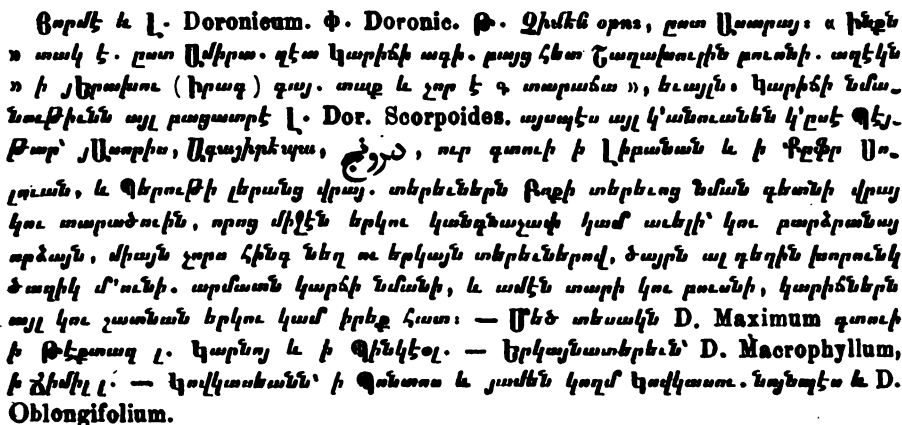 Յորմէ և Լ. Doronicum. Ֆ. Doronic. Թ. Չիմէն օթու, ըստ Ասարայ։ « ինքն
» տակ է. ըստ Ամիրտ. զէտ կարիճի ագի. բայց հետ Շաղախուրին բուսնի. աղէկն
» ի յԵրախու (իրագ) գայ. տաք և չոր է գ տարաճտ », ևւայլն. կարիճի նմա֊
նութիւնն այլ բացատրէ Լ. Dor. Scorpoides. այսպէս այլ կ'անուանեն կ'ըսէ Պէյ֊
թար՝ յԱսորիս, Ագպչիրէպպա, , ուր գտուի ի Լիբանան և ի Քըֆր Սո֊
լուան, և Պերութի լերանց վրայ. տերեւներն Բոքի տերեւոց նման գետնի վրայ
կու տարածուին, որոց միջէն երկու կանգնաչափ կամ աւելի՝ կու բարձրանայ
որձայն, միայն չորս հինգ նեղ ու երկայն տերեւներով, ծայրն ալ դեղին խորունկ
ծաղիկ մ'ունի. արմատն կարճի նմանի, և ամէն տարի կու բուսնի, կարիճներն
այլ կու շատնան երկու կամ իրեք հատ։ — Մեծ տեսակն D. Maximum գտուի
ի Թէքտաղ լ. Կարնոյ և ի Պինկէօլ. — Երկայնատերեւն՝ D. Macrophyllum,
ի Ճիմիլ լ. — Կովկասեանն՝ ի Պոնտոս և յամեն կողմ Կովկասու. նոյնպէս և D.
Oblongifolium.